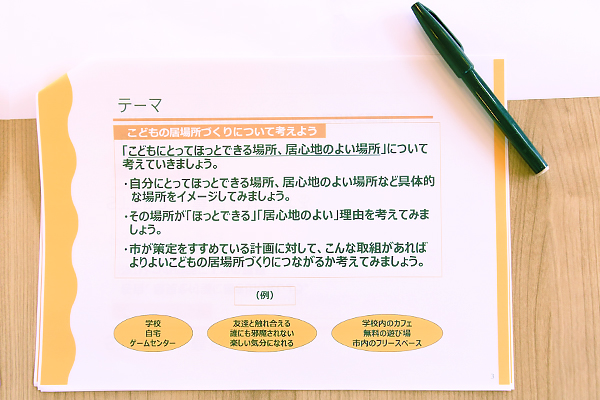 テーマ
こどもの居場所づくりについて考えよう
「こどもにとってほっとできる場所、居心地のよい場所」について
考えていきましょう。
・自分にとってほっとできる場所、居心地のよい場所など具体的
な場所をイメージしてみましょう。
・その場所が「ほっとできる」「居心地のよい」理由を考えてみま
しょう。
・市が策定をすすめている計画に対して、こんな取組があれば
よりよいこどもの居場所づくりにつながるか考えてみましょう。
（例）
学校
自宅
ゲームセンター
友達と触れ合える
誰にも邪魔されない
楽しい気分になれる
学校内のカフェ
無料の遊び場
市内のフリースペース